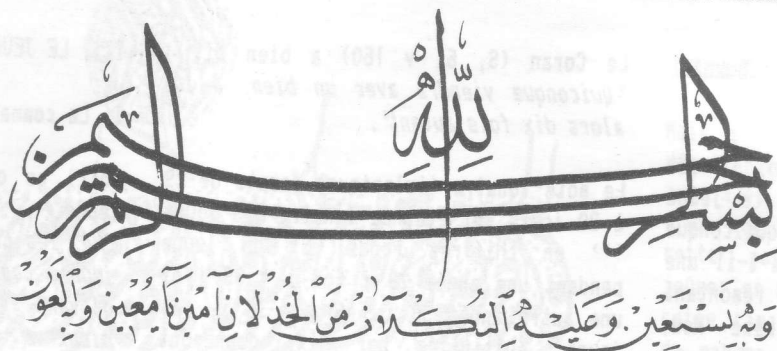 بسم الله الرحمن الرحيم
وبه استعين وعليه التكلان من الخذلان آمين يا معين وبه العون